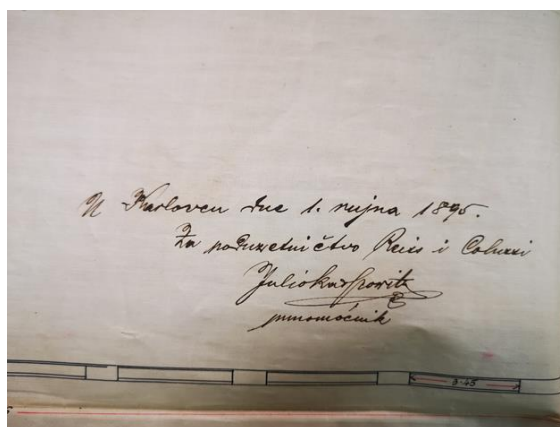 U Karlovcu dne 1. rujna 1895.
Za poduzetničtvo Reiss i Coluzzi
Julio
punomoćnik
3.45